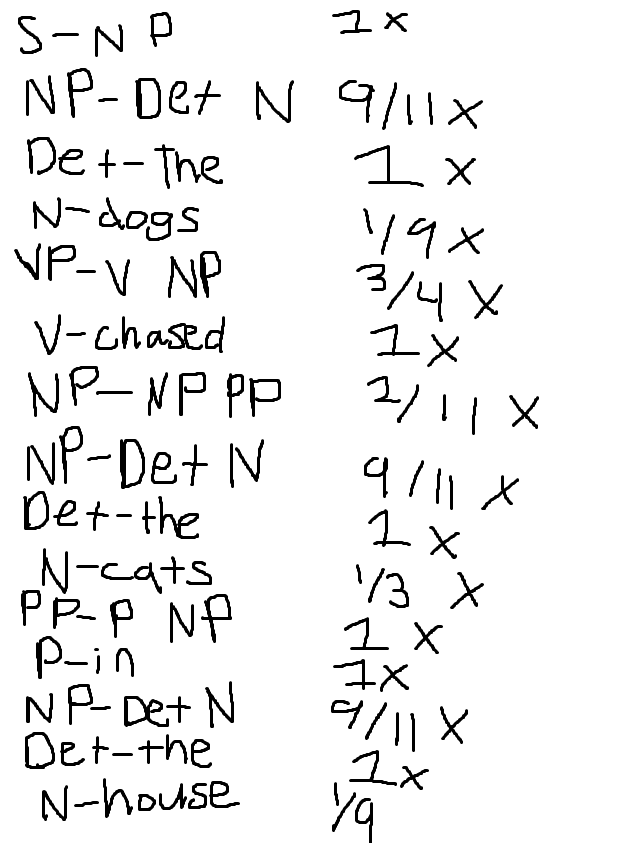 S-NP 1x
NP-Det N 9/11x
Det-The 1x
N-dogs 1/9x
VP-V NP 3/4x
V-chased 1x
NP-NP PP 2/11x
NP-Det N 9/11x
Det-the 1x
N-cats 1/3x
PP-P NP 1x
P-in 1x
NP-Det N 9/11x
Det-the 1x
N-house 1/9